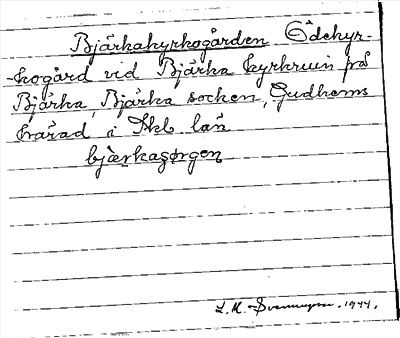 Bjärkakyrkogården Ödekyr-
-kogård vid Bjärka kyrkruin på
Bjärka, Bjärka socken, Gudhems
härad i Skb. län
bjærkagørgen
L. M. Svenungsson. 1944.